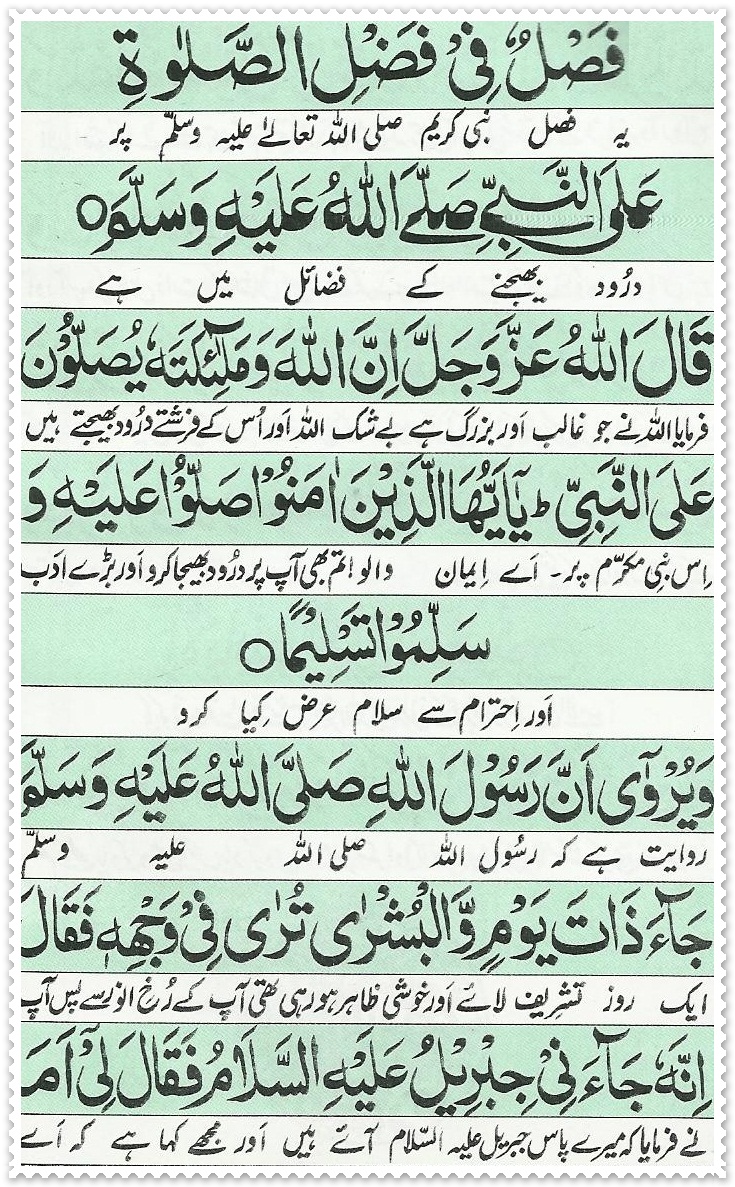 فَصْلٌ فِیْ فَضْلِ الصَّلٰوةِ
یہ فصل نبی کریم صلی اللہ تعالےٰ علیہ وسلّم پر
عَلَی النَّبِیِّ صَلَّے اللّٰهُ عَلَیْهِ وَسَلَّمَ○
درُود بھیجنے کے فضائل میں ہے
قَالَ اللّٰهُ عَزَّوَجَلَّ اِنَّ اللّٰهَ وَمَلٰٓئِكَتَهٗ یُصَلُّوْنَ
فرمایا اللہ نے جو غالب اَور بزرگ ہے بے شک اللہ اَور اُس کے فرشتے درُود بھیجتے ہیں
عَلَی النَّبِیِّ ؕ یٰۤاَیُّهَا الَّذِیْنَ اٰمَنُوْا صَلُّوْا عَلَیْهِ وَ
اِس نبِی مکرّم پر۔ اَے اِیمان والو! تم بھی آپ پر درُود بھیجا کرو اَور بڑے ادَب
سَلِّمُوْا تَسْلِیْمًا○
اَور اِحترام سے سلام عرض کِیا کرو
وَیُرْوٰٓی اَنَّ رَسُوْلَ اللّٰهِ صَلَّی اللّٰهُ عَلَیْهِ وَسَلَّمَ
روایت ہے کہ رسُول اللہ صلی اللہ علیہ وسلّم
جَآءَ ذَاتَ یَوْمٍ وَّالْبُشْرٰی تُرٰی فِیْ وَجْهِهٖ فَقَالَ
ایک روز تشریف لائے اَور خوشی ظاہر ہو رہی تھی آپ کے رُخِ انور سے پس آپ
اِنَّهٗ جَآءَنِیْ جِبْرِیْلُ عَلَیْهِ السَّلَامُ فَقَالَ لِیْٓ اَمَ
نے فرمایا کہ میرے پاس جبریل علیہ السّلام آئے ہیں اَور مجھے کہا ہے کہ اَے